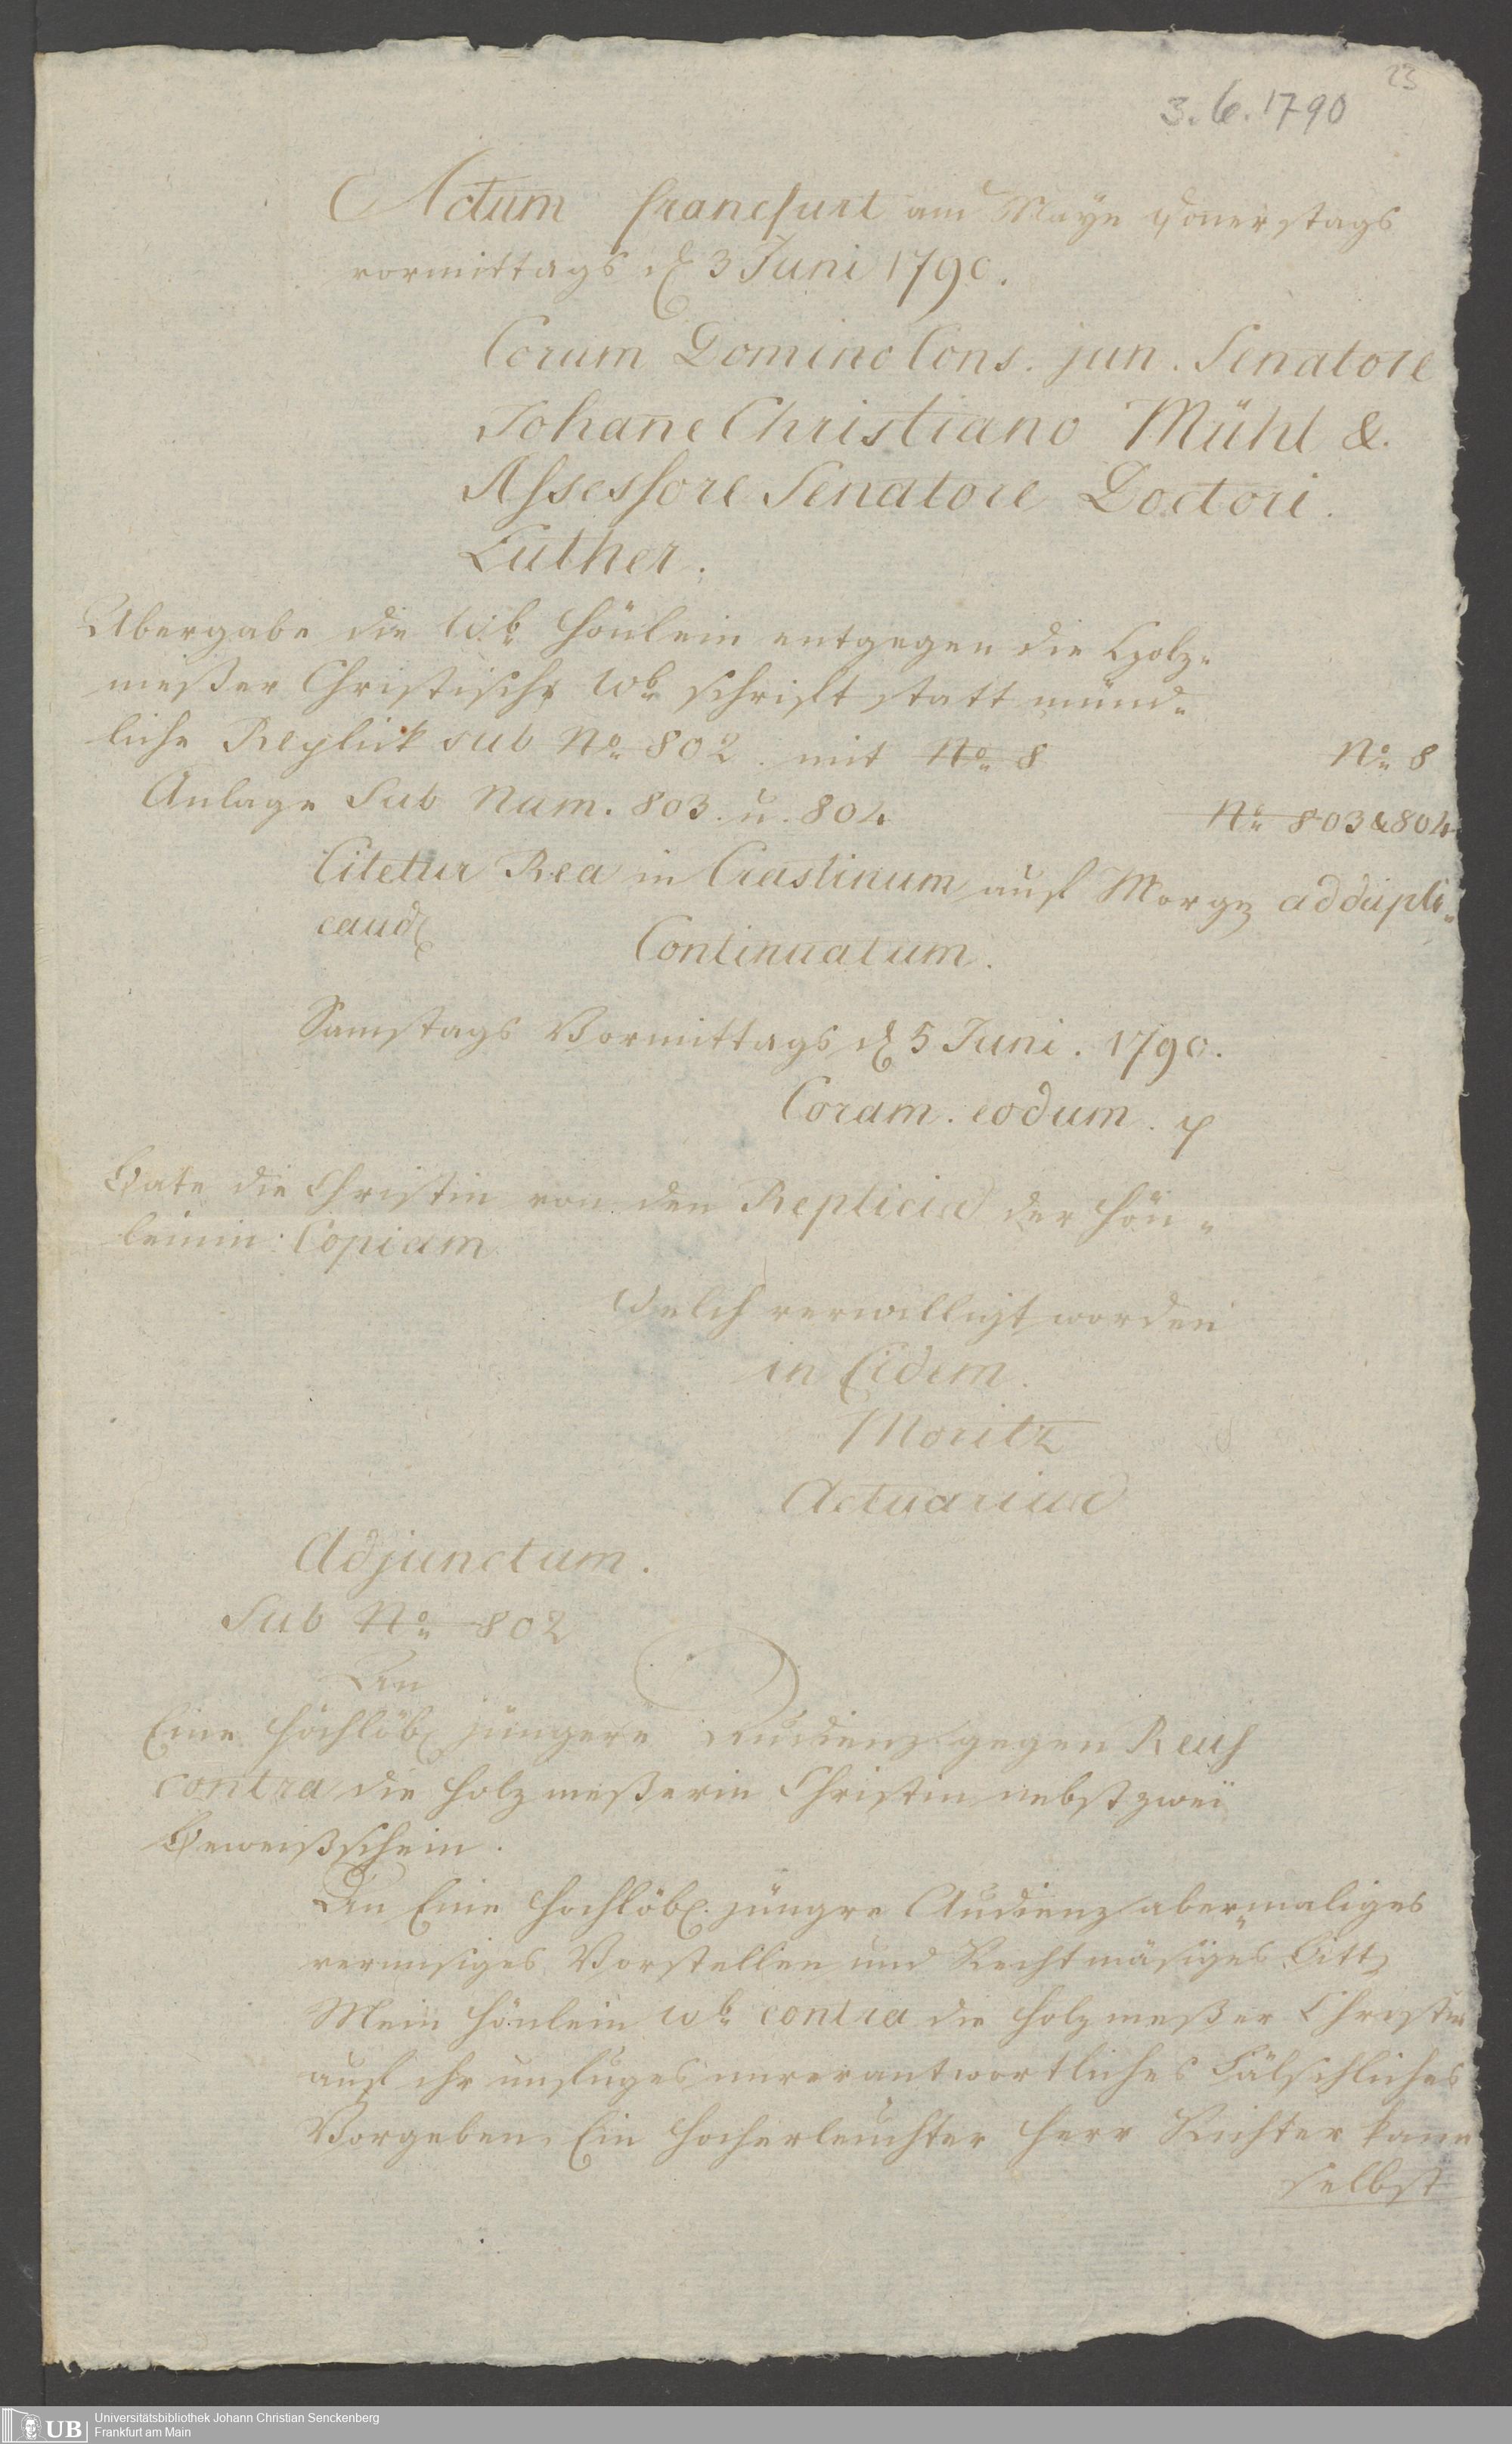 23
3. 6. 1790
Actum francfurt am Mayn Donerstags
vormittags d 3 Juni 1790.
Corum Domino Cons. jun. Senatore
Johane Christiano Mühl &.
Assessore Senatore Doctori.
Luther.
Ubergabe die Wb. Hönlein entgegen die Holz-
meßer Christische Wb. schrift statt münd-
liche Replick sub No. 802. mit No. 8
No. 8
Anlage Sub Num. 803. u. 804
No. 803 & 804
Citetur Rea in Crastinum auf Morge ad dupli-
cand
Continuatum.
Samstags Vormittags d 5 Juni. 1790.
Coram. eodum.
Bate die Christin von den Replicis der Hön-
leinin Copiam
Welch verwilligt worden
in Fidem.
Moritz
Actuarius
Adjunctum.
Sub No. 802
An
Eine Hochlöb jüngere Audienz gegen
contra die Holzmeßerin Christin nebst zwei
Beweißschein.
An Eine Hochlöb. jüngre Audienz abermaliges
Vorstellen und Rechtmäsiges Bitt
Mein Hönlein Wb. contra die Holzmeßer Christin
auf ihr unfuges unverantwortliches Fälschliches
Vorgeben, Ein Hocherleuchter Herr Richter kann
selbst
UB
Universitätsbibliothek Johann Christian Senckenberg
Frankfurt am Main